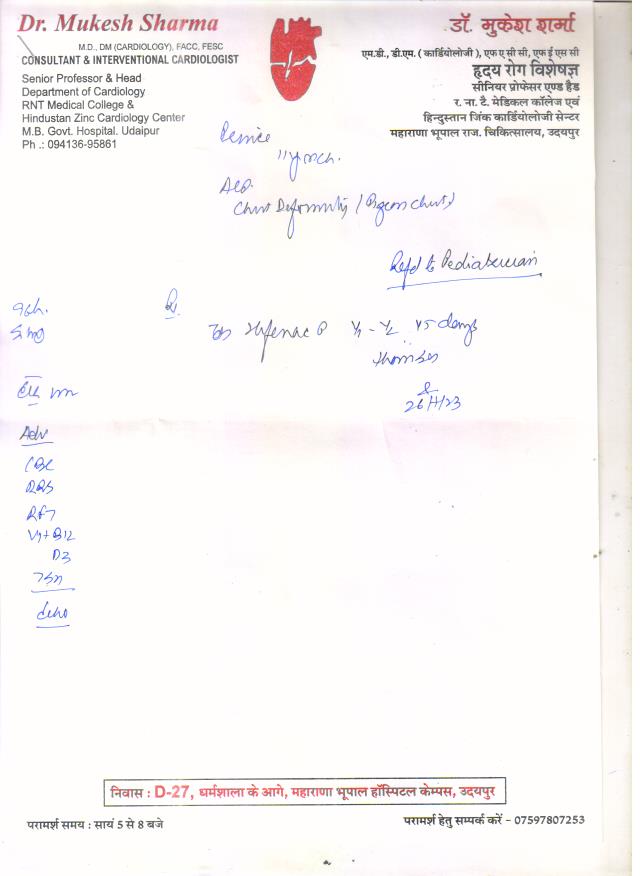 Dr. Mukesh Sharma
M.D., DM (CARDIOLOGY), FACC, FESC
CONSULTANT & INTERVENTIONAL CARDIOLOGIST
Senior Professor & Head
Department of Cardiology
RNT Medical College &
Hindustan Zinc Cardiology Center
M.B. Govt. Hospital. Udaipur
Ph .: 094136-95861
डॉ. मुकेश शर्मा
एम.डी., डी.एम. ( कार्डियोलोजी ), एफ ए सी सी, एफ ई एस सी
हृदय रोग विशेषज्ञ
सीनियर प्रोफेसर एण्ड हैड
र. ना. टै. मेडिकल कॉलेज एवं
हिन्दुस्तान जिंक कार्डियोलोजी सेन्टर
महाराणा भूपाल राज. चिकित्सालय, उदयपुर
Chest Deformity
Refd to Pediatrician
Rx
5 days
26/4/23
Adv
CBC
RBS
RFT
Vit B12
D3
TSH
Echo
निवास : D-27, धर्मशाला के आगे, महाराणा भूपाल हॉस्पिटल केम्पस, उदयपुर
परामर्श समय : सायं 5 से 8 बजे
परामर्श हेतु सम्पर्क करें - 07597807253